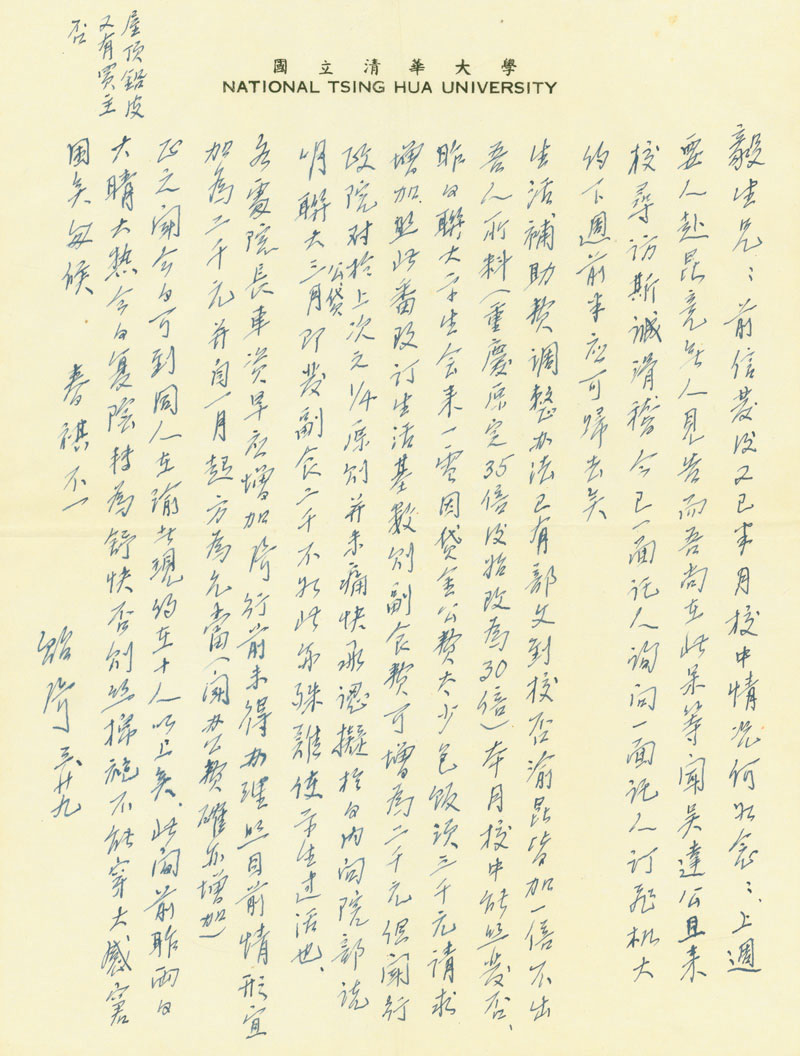 國立清華大學
NATIONAL TSING HUA UNIVERSITY
毅生兄：前信發後又已半月校中情況何如念念、上週
要人赴昆竟無人見告而吾尚在此呆等聞吳達公且來
校尋訪斯誠滑稽今已一面託人詢問一面託人訂飛机大
約下週前半应可歸去矣
生活補助費調整办法已有部文到校否渝昆皆加一倍不出
吾人所料（重慶原定35倍後始改為30倍）本月校中能照發否、
昨日聯大学生会来一電因貸金公費太少包飯須三千元請求
增加照此番改訂生活基數則副食費可增為二千元但聞行
政院对於上次之1/4原則并未痛快承認擬於日內向院部說
明聯大三月公貸即發副食二千不如此亦殊難使学生過活也、
各處院長車資早应增加 行前未得办理照目前情形宜
加為二千元并自一月起方為允當（聞办公費確亦增加）
正之聞今日可到同人在渝者現約在十人以上矣、此间前昨兩日
大晴大热今日复陰轉為舒快否則丝棉袍不能穿大感窘
困矣匆候
春祺不一
貽琦 三、廿九
屋頂鋁皮
又有買主
否